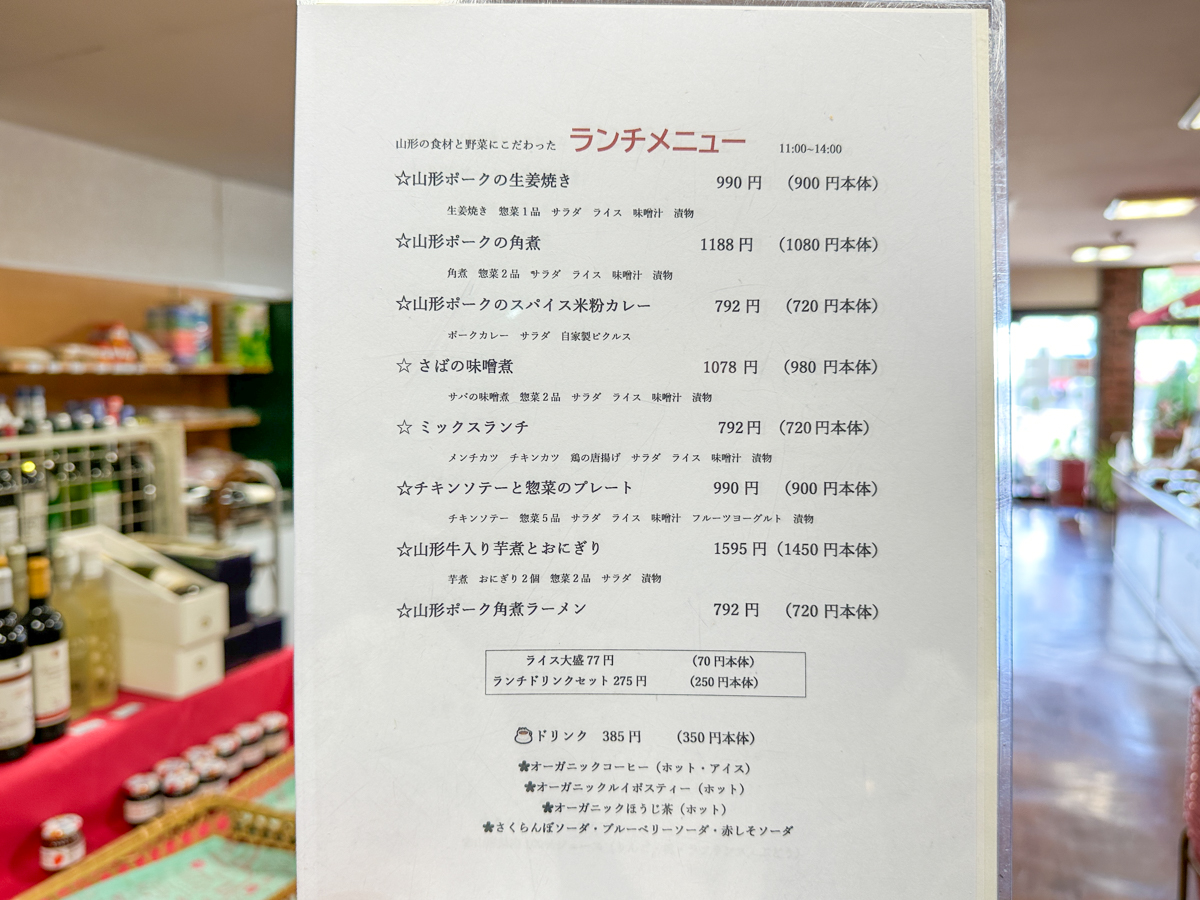 山形の食材と野菜にこだわった ランチメニュー 11:00~14:00
☆山形ポークの生姜焼き 990 円 (900 円本体)
生姜焼き 惣菜1品 サラダ ライス 味噌汁 漬物
☆山形ポークの角煮 1188 円 (1080 円本体)
角煮 惣菜2品 サラダ ライス 味噌汁 漬物
☆山形ポークのスパイス米粉カレー 792 円 (720 円本体)
ポークカレー サラダ 自家製ピクルス
☆ さばの味噌煮 1078 円 (980 円本体)
サバの味噌煮 惣菜2品 サラダ ライス 味噌汁 漬物
☆ ミックスランチ 792 円 (720 円本体)
メンチカツ チキンカツ 鶏の唐揚げ サラダ ライス 味噌汁 漬物
☆チキンソテーと惣菜のプレート 990 円 (900 円本体)
チキンソテー 惣菜5品 サラダ ライス 味噌汁 フルーツヨーグルト 漬物
☆山形牛入り芋煮とおにぎり 1595 円 (1450 円本体)
芋煮 おにぎり2個 惣菜2品 サラダ 漬物
☆山形ポーク角煮ラーメン 792 円 (720 円本体)
ライス大盛 77 円 (70 円本体)
ランチドリンクセット 275 円 (250 円本体)
ドリンク 385 円 (350 円本体)
オーガニックコーヒー(ホット・アイス)
オーガニックルイボスティー(ホット)
オーガニックほうじ茶(ホット)
さくらんぼソーダ・ブルーベリーソーダ・赤しそソーダ